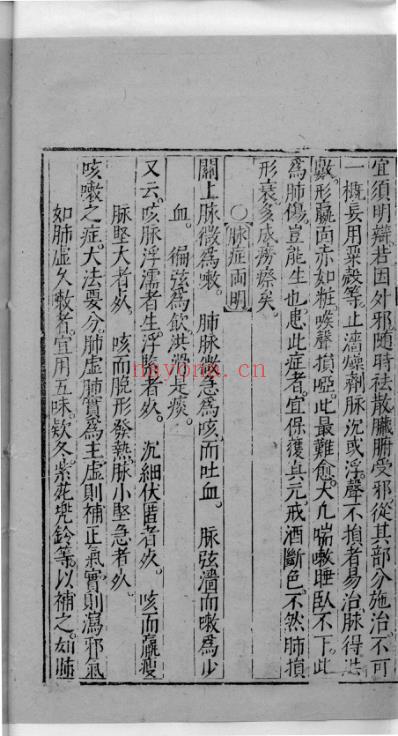 宜須明辯若因外邪隨時祛散臟腑受邪從其部分施治不可
一概妄用粟殼等止濇燥劑脉沉或浮聲不損者易治脉得洪
數形羸面赤如粧喉聲損啞此最難愈大凢喘嗽睡臥不下此
為肺傷豈能生也患此症者宜保後真元戒酒斷色不然肺損
形衰多成癆瘵矣
〇脉症両明
關上脉微為嗽 肺脉微急為咳而吐血 脉弦濇而嗽為少
血 偏弦為飲洪滑是痰
又云咳脉浮濡者生浮緊者死 沉細伏匿者死 咳而羸瘦
脉堅大者死 咳而脫形發熱脉小堅急者死
咳嗽之症大法要分肺虛肺實為主虛則補正氣實則瀉邪氣
如肺虛久嗽者宜用五味欵冬紫苑兜鈴等以補之如肺
nayona.cn